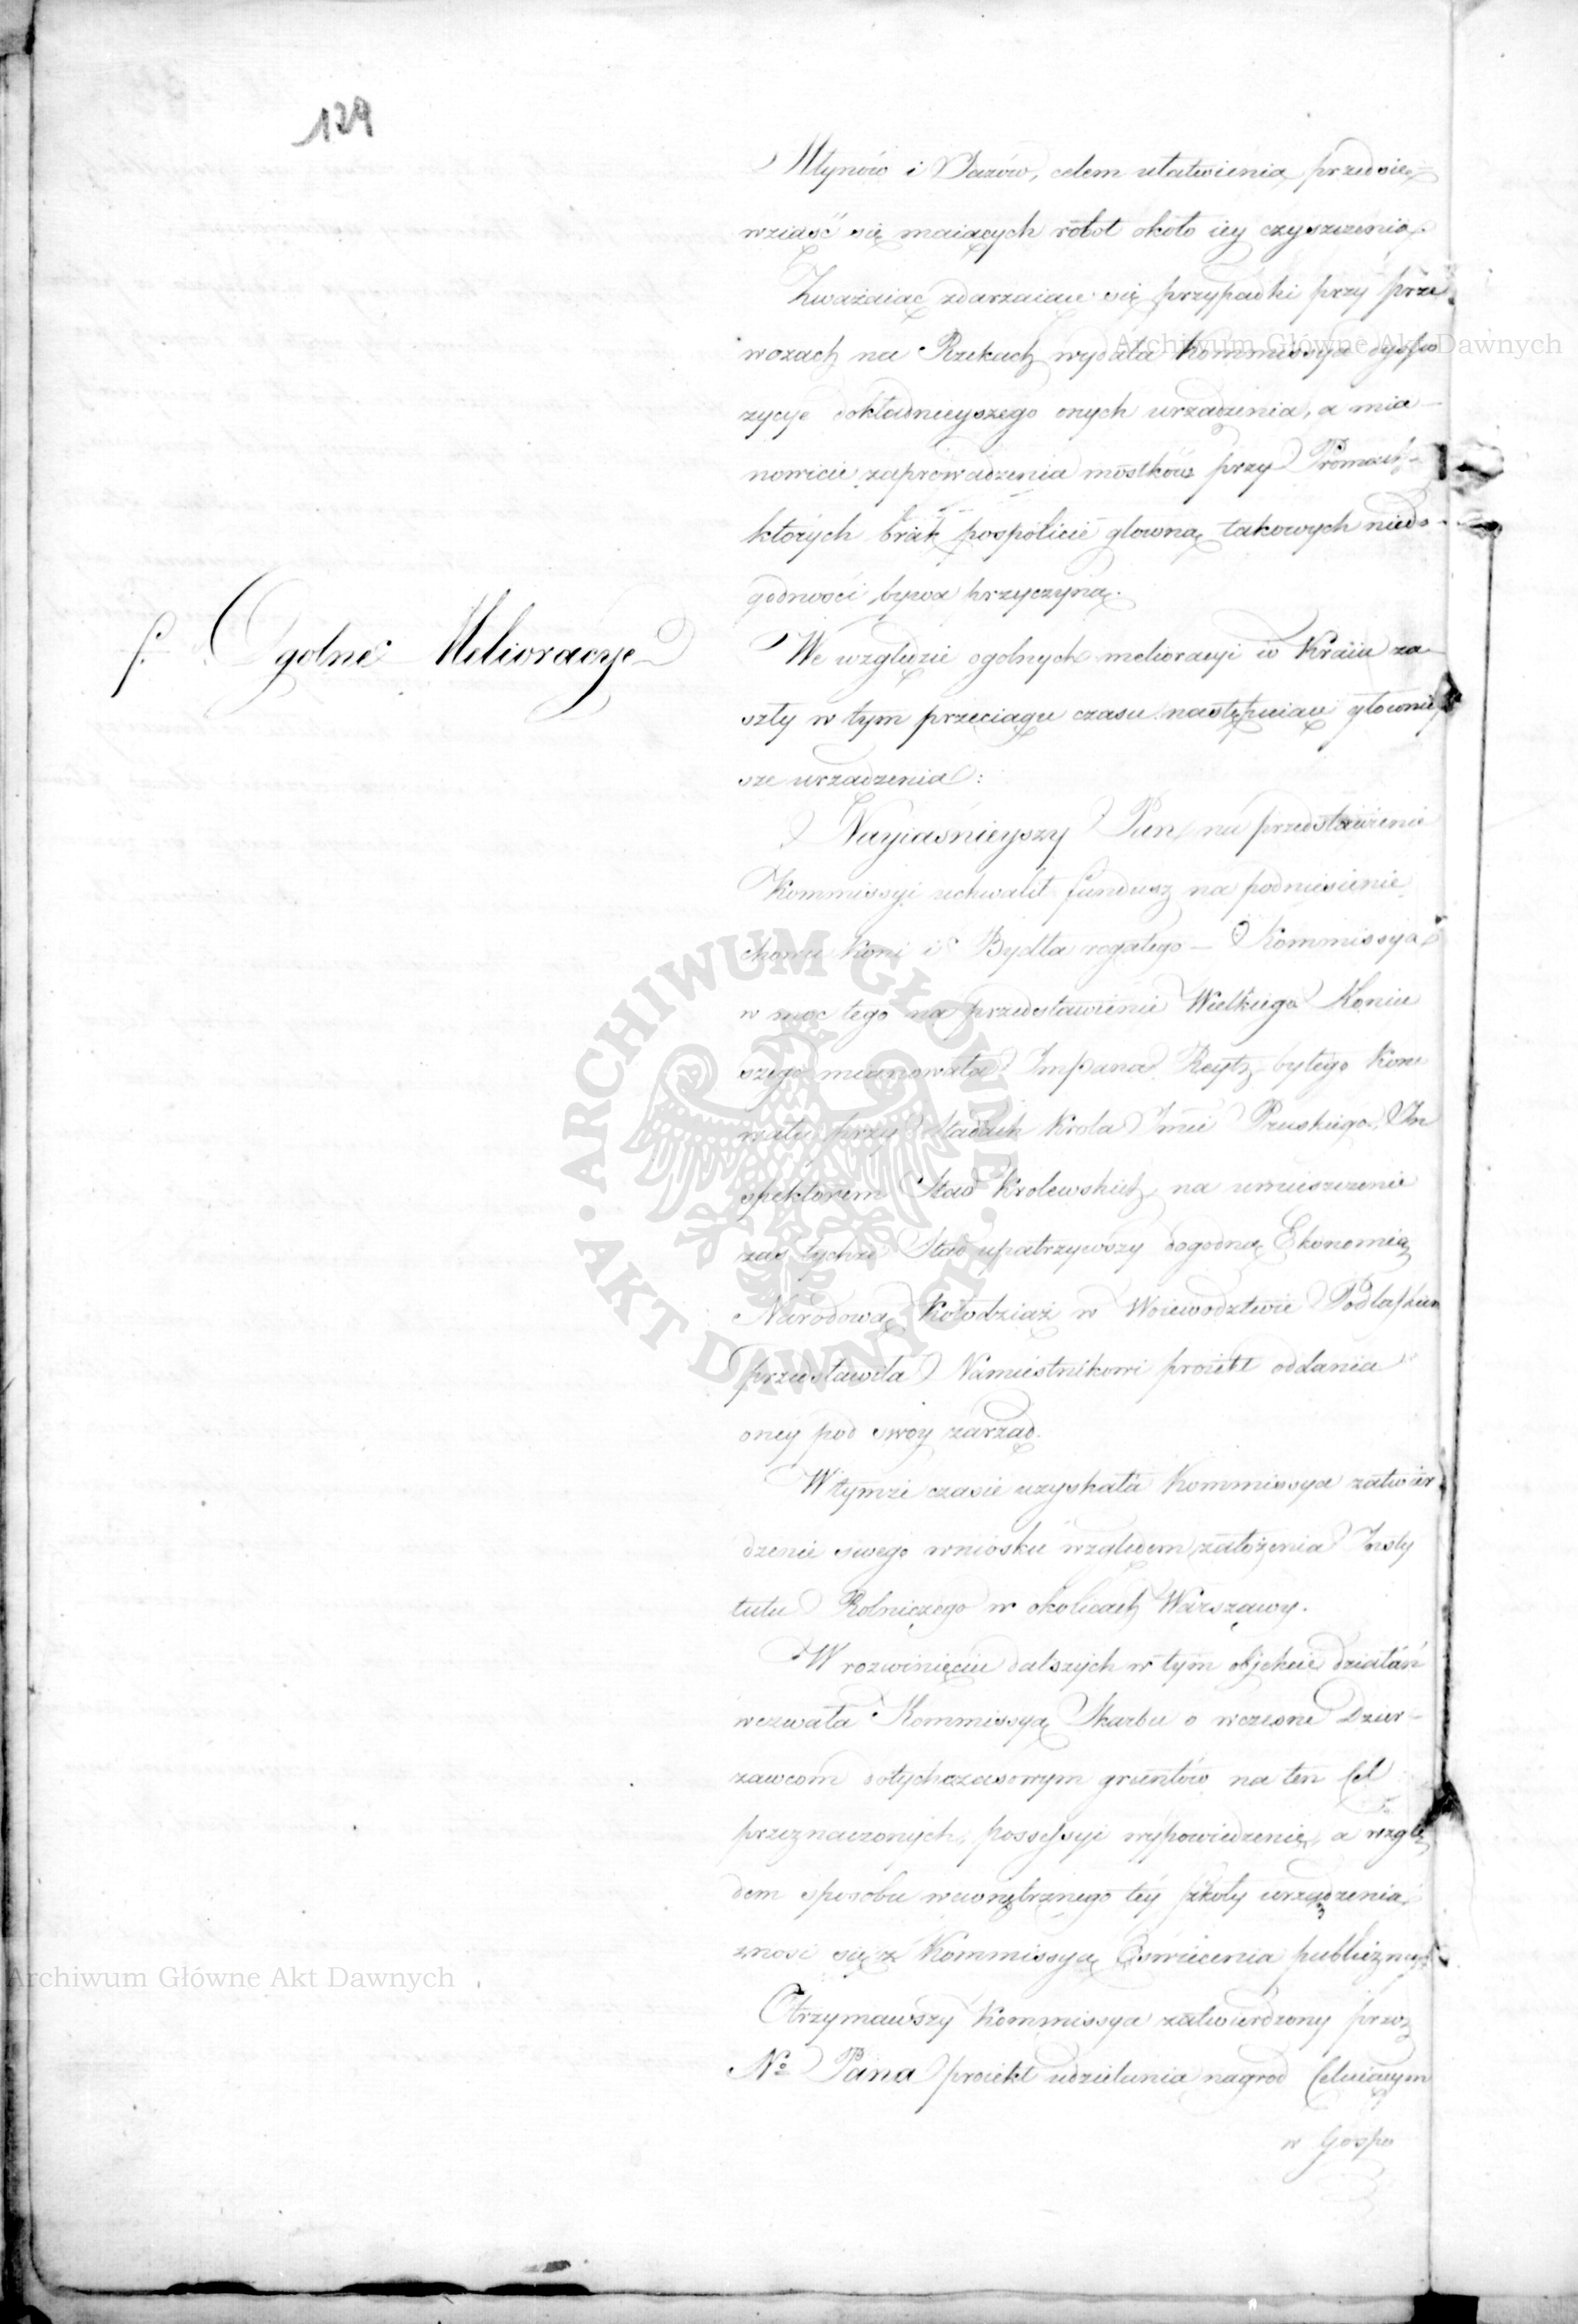 129
Młynów i Jazów, celem ułatwienia przedsię-
wziąść się maiących robot około iey czyszczenia.
Zważaiąc zdarzaiące się przypadki przy prze
wozach na Rzekach wydała Kommissya dyspo
zycye dokładnieyszego onych urządzenia, a mia-
nowicie zaprowadzenia mostków przy Promach-
których brak pospolicie głowną takowych niedo-
godności bywa przyczyną.
f. Ogolne Melioracye
We względzie ogolnych melioracyi w Kraiu za-
szły w tym przeciągu czasu następuiące głowniey
sze urządzenia:
Nayiaśnieyszy Pan na przedstawienie
Kommissyi uchwalił fundusz na podniesienie
chowu Koni i Bydła rogatego - Kommissya
w moc tego na przedstawienie Wielkiego Koniu
szego mianowała Impana Reytz byłego Kon
przy Stadach Krola Jmci Pruskiego, In
spektorem Stad Krolewskich, na umieszczenie
zas tychże Stad upatrzywszy dogodną Ekonomią
Narodową Kołodziąż w Woiewodztwie Podlaskiem
przedstawiła Namiestnikowi proiekt oddania
oney pod swoy zarząd.
W tymże czasie uzyskała Kommissya zatwier
dzenie swego wniosku względem założenia Insty
tutu Rolniczego w okolicach Warszawy.
W rozwinięciu dalszych w tym objekcie działań
wezwała Kommissyą Skarbu o wczesne Dzier-
zawcom dotychczasowym gruntów na ten Cel
przeznaczonych, possessyi wypowiedzenie, a wzglę
dem sposobu wewnętrznego tey szkoły urządzenia
znosi się z Kommissyą Oświecenia publicznego
Otrzymawszy Kommissya zatwierdzony przez
No Pana proiekt udzielania nagrod Celuiącym
w Gospo
Archiwum Główne Akt Dawnych
ARCHIWUM GŁÓWNE AKT DAWNYCH
Archiwum Główne Akt Dawnych